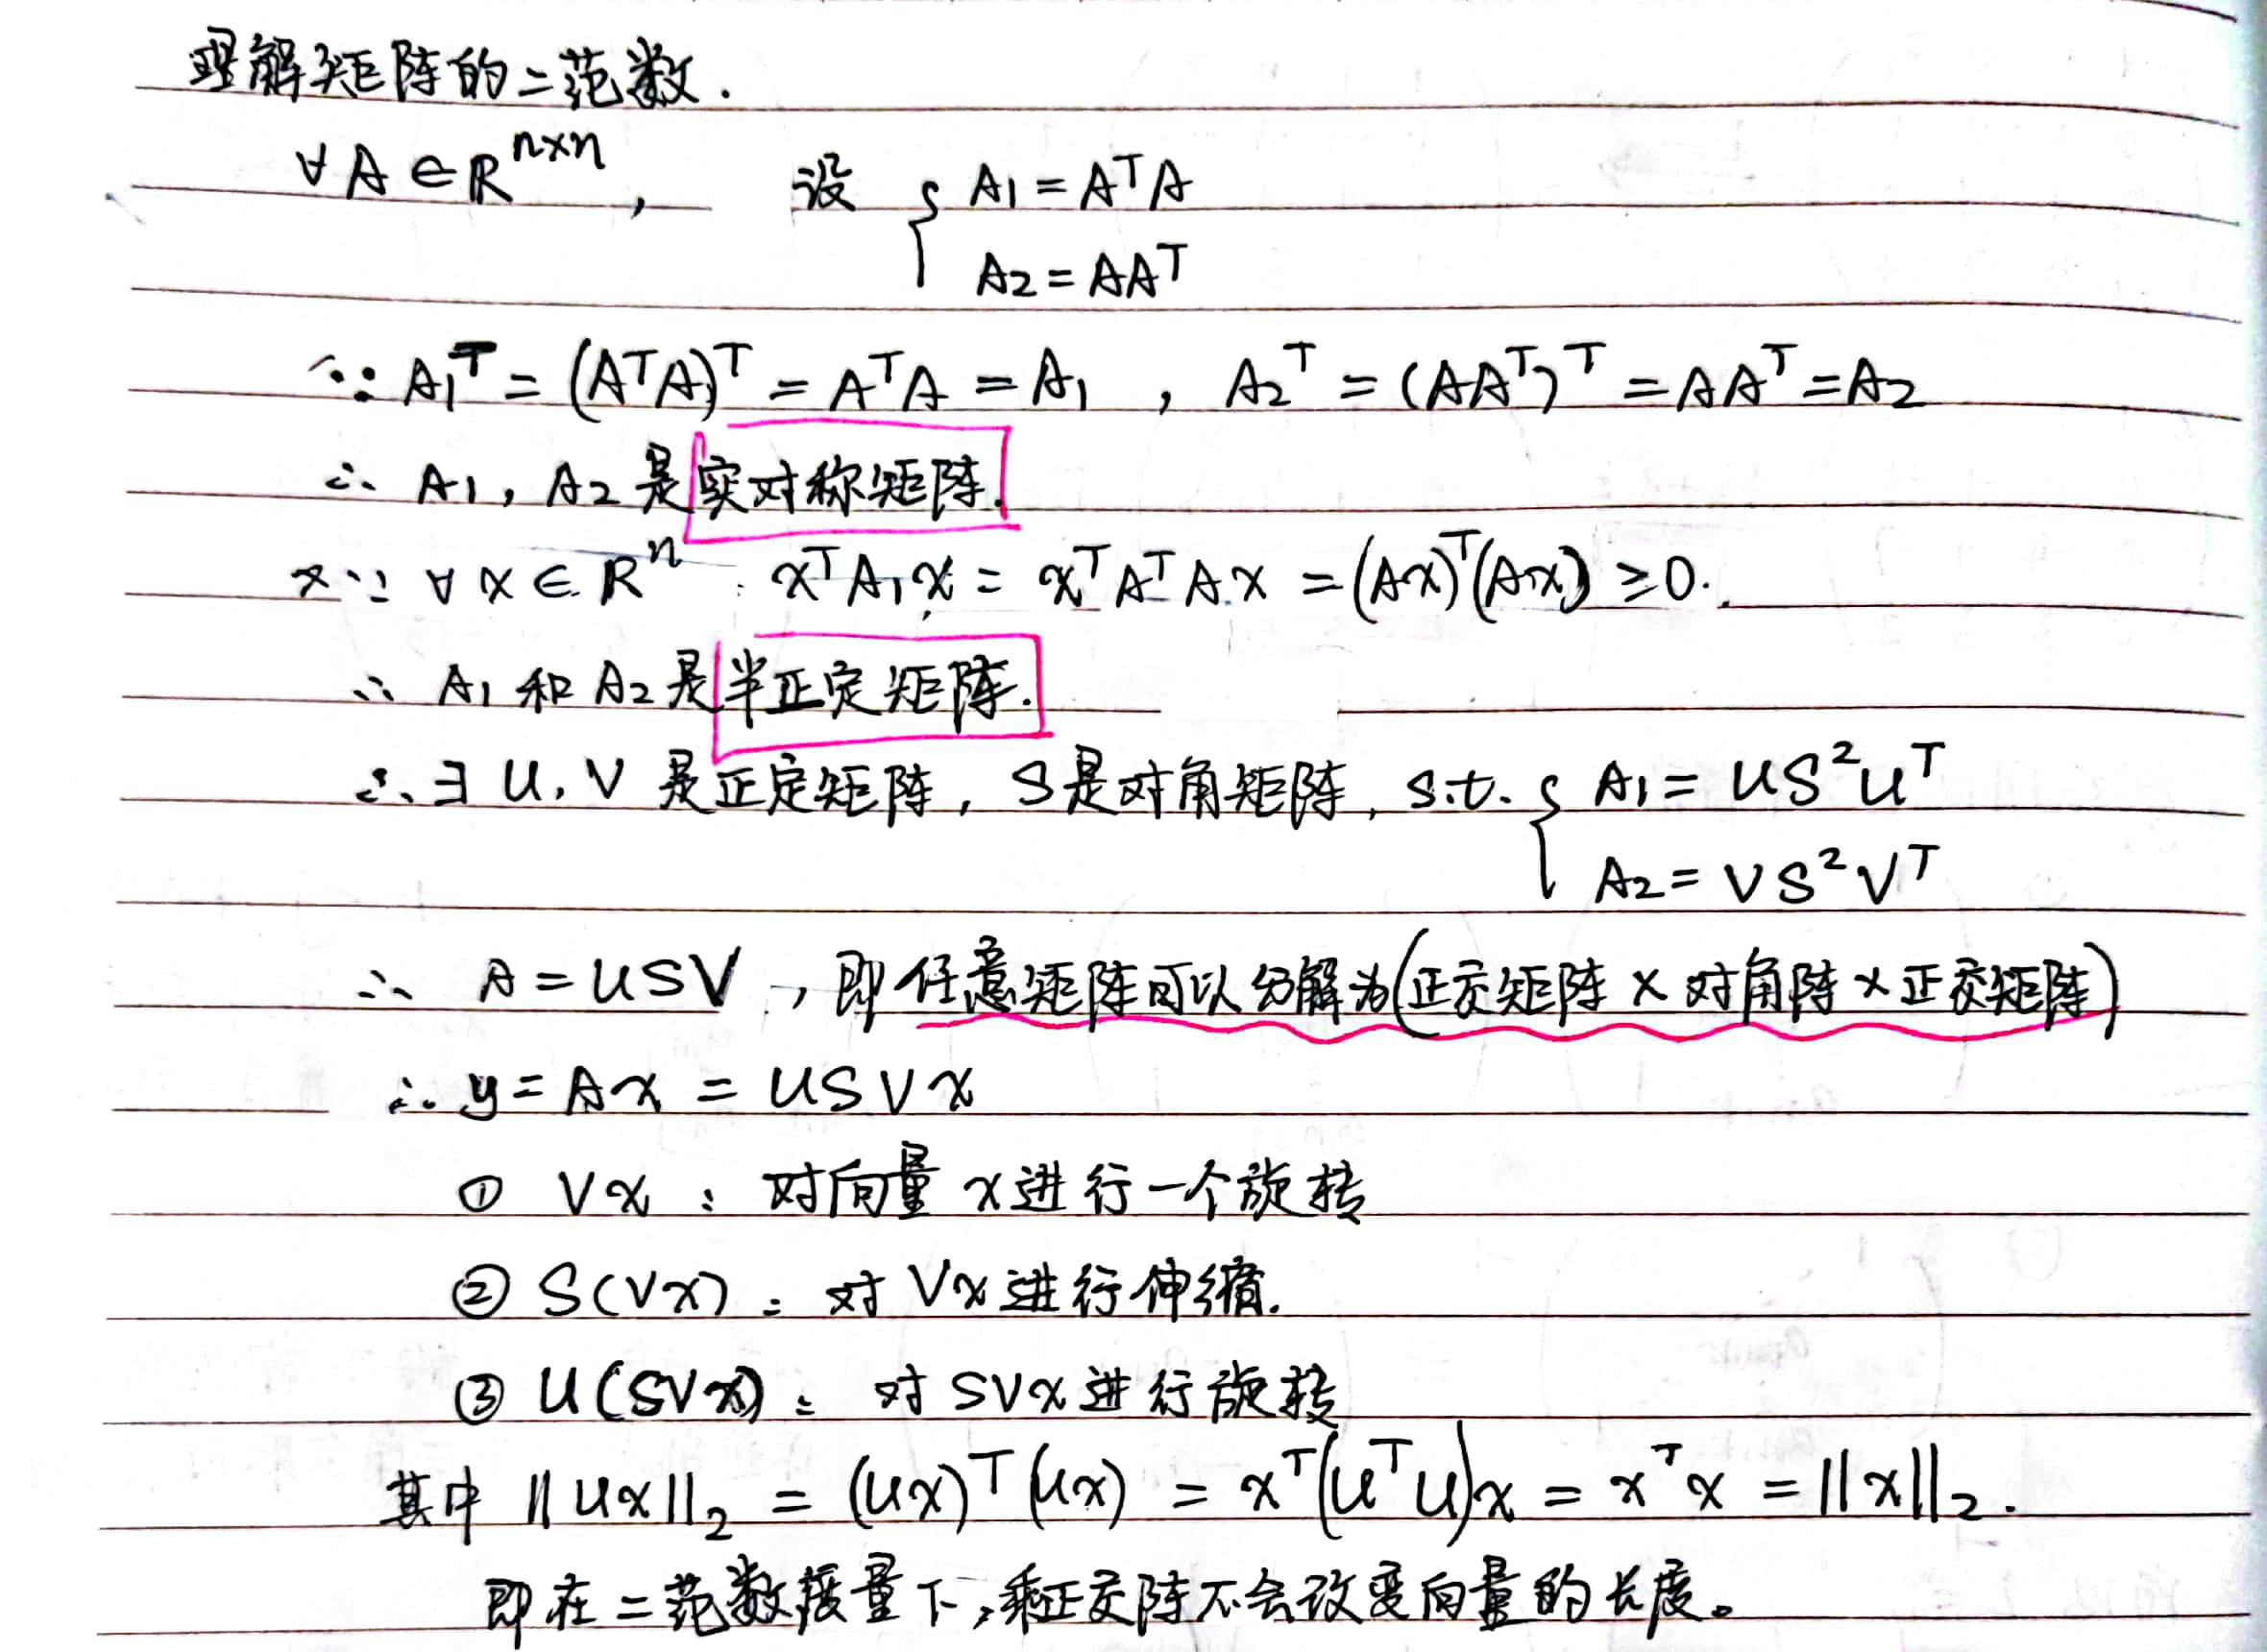 理解矩阵的二范数.
∀A∈R^{n×n}, 设 { A₁=AᵀA
A₂=AAᵀ
∵ A₁ᵀ=(AᵀA)ᵀ=AᵀA=A₁ , A₂ᵀ=(AAᵀ)ᵀ=AAᵀ=A₂
∴ A₁, A₂是实对称矩阵.
又∵ ∀x∈Rⁿ xᵀA₁x=xᵀAᵀAx=(Ax)ᵀ(Ax)≥0.
∴ A₁和A₂是半正定矩阵.
∴ ∃ U, V 是正定矩阵, S是对角矩阵, s.t. { A₁=US²Uᵀ
A₂=VS²Vᵀ
∴ A=USV , 即任意矩阵可以分解为(正交矩阵×对角阵×正交矩阵)
∴ y=Ax=USVx
① Vx: 对向量x进行一个旋转
② S(Vx): 对Vx进行伸缩.
③ U(SVx): 对SVx进行旋转
其中 ||Ux||₂=(Ux)ᵀ(Ux)=xᵀ(UᵀU)x=xᵀx=||x||₂.
即在二范数度量下,乘正交阵不会改变向量的长度。